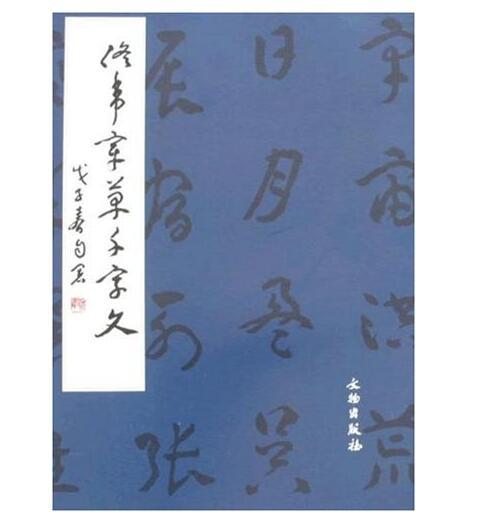 宇宙洪荒
日月盈昃
辰宿列张
文物出版社
佟韦章草千字文
戊子春自署